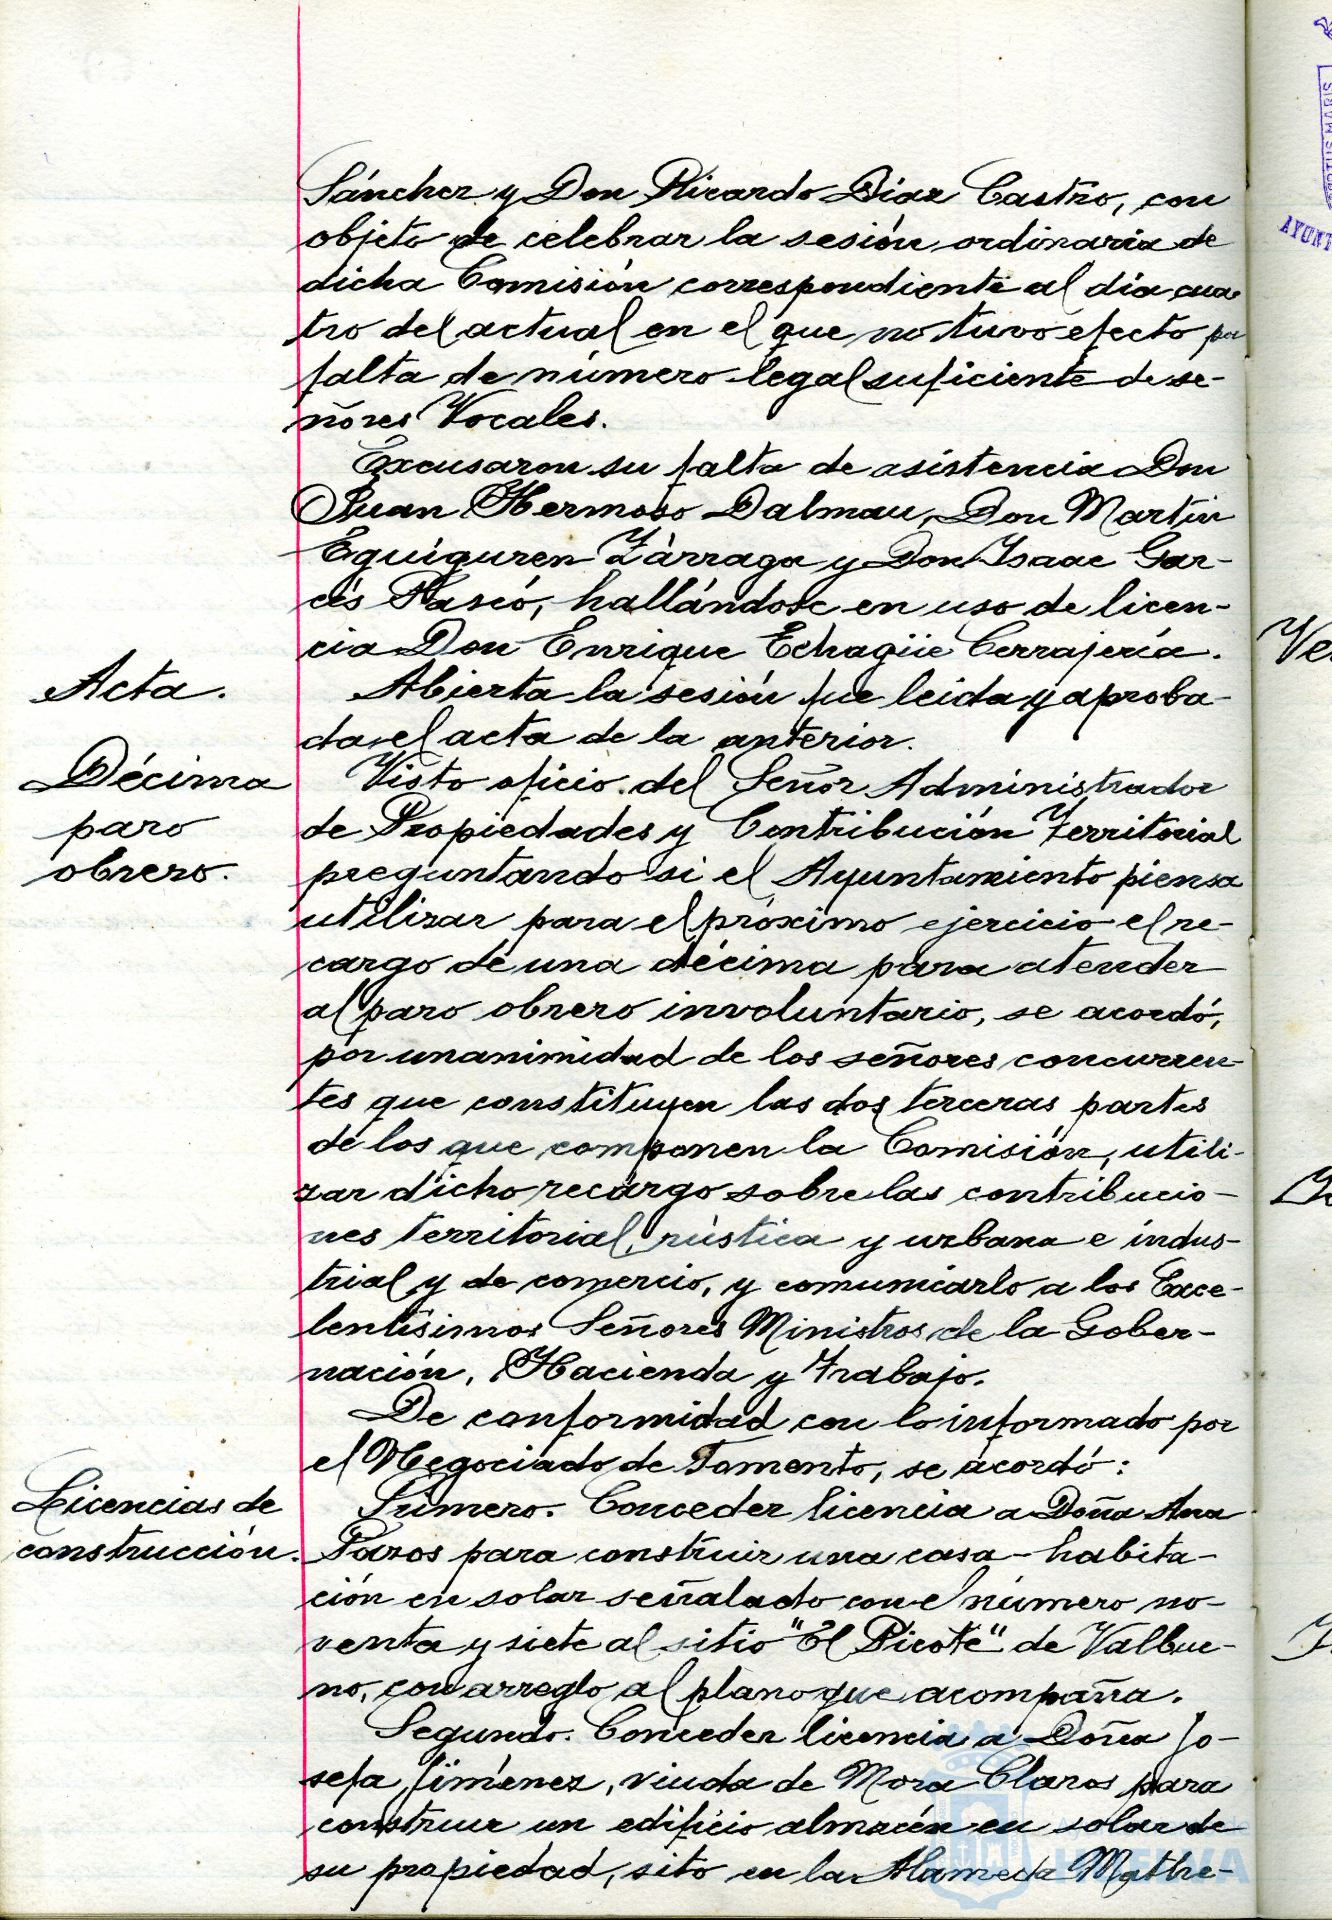 Sánchez y Don Ricardo Díaz Castro, con
objeto de celebrar la sesión ordinaria de
dicha Comisión correspondiente al día cua
tro del actual en el que no tuvo efecto por
falta de número legal suficiente de se-
ñores Vocales.
Excusaron su falta de asistencia Don
Juan Hermoso Dalmau, Don Martín
Eguiguren Zárraga y Don Isaac Gar-
cés Rasco, hallándose en uso de licen-
cia Don Enrique Echagüe Cerrajería.
Acta.
Abierta la sesión fue leida y aproba-
da el acta de la anterior.
Décima
paro
obrero.
Visto oficio del Señor Administrador
de Propiedades y Contribución Territorial
preguntando si el Ayuntamiento piensa
utilizar para el próximo ejercicio el re-
cargo de una décima para atender
al paro obrero involuntario, se acordó,
por unanimidad de los señores concurren-
tes que constituyen las dos terceras partes
de los que componen la Comisión, utili-
zar dicho recargo sobre las contribucio-
nes territorial, rústica y urbana e indus-
trial y de comercio, y comunicarlo a los Exce-
lentísimos Señores Ministros de la Gober-
nación, Hacienda y Trabajo.
De conformidad con lo informado por
el Negociado de Fomento, se acordó:
Licencias de
construcción.
Primero. Conceder licencia a Doña Ana
Pazos para construir una casa-habita-
ción en solar señalado con el número no-
venta y siete al sitio "El Picote" de Valbue-
no, con arreglo al plano que acompaña.
Segundo. Conceder licencia a Doña Jo-
sefa Jiménez, viuda de Mora Claros para
construir un edificio almacén en solar de
su propiedad, sito en la Alameda
HUELVA